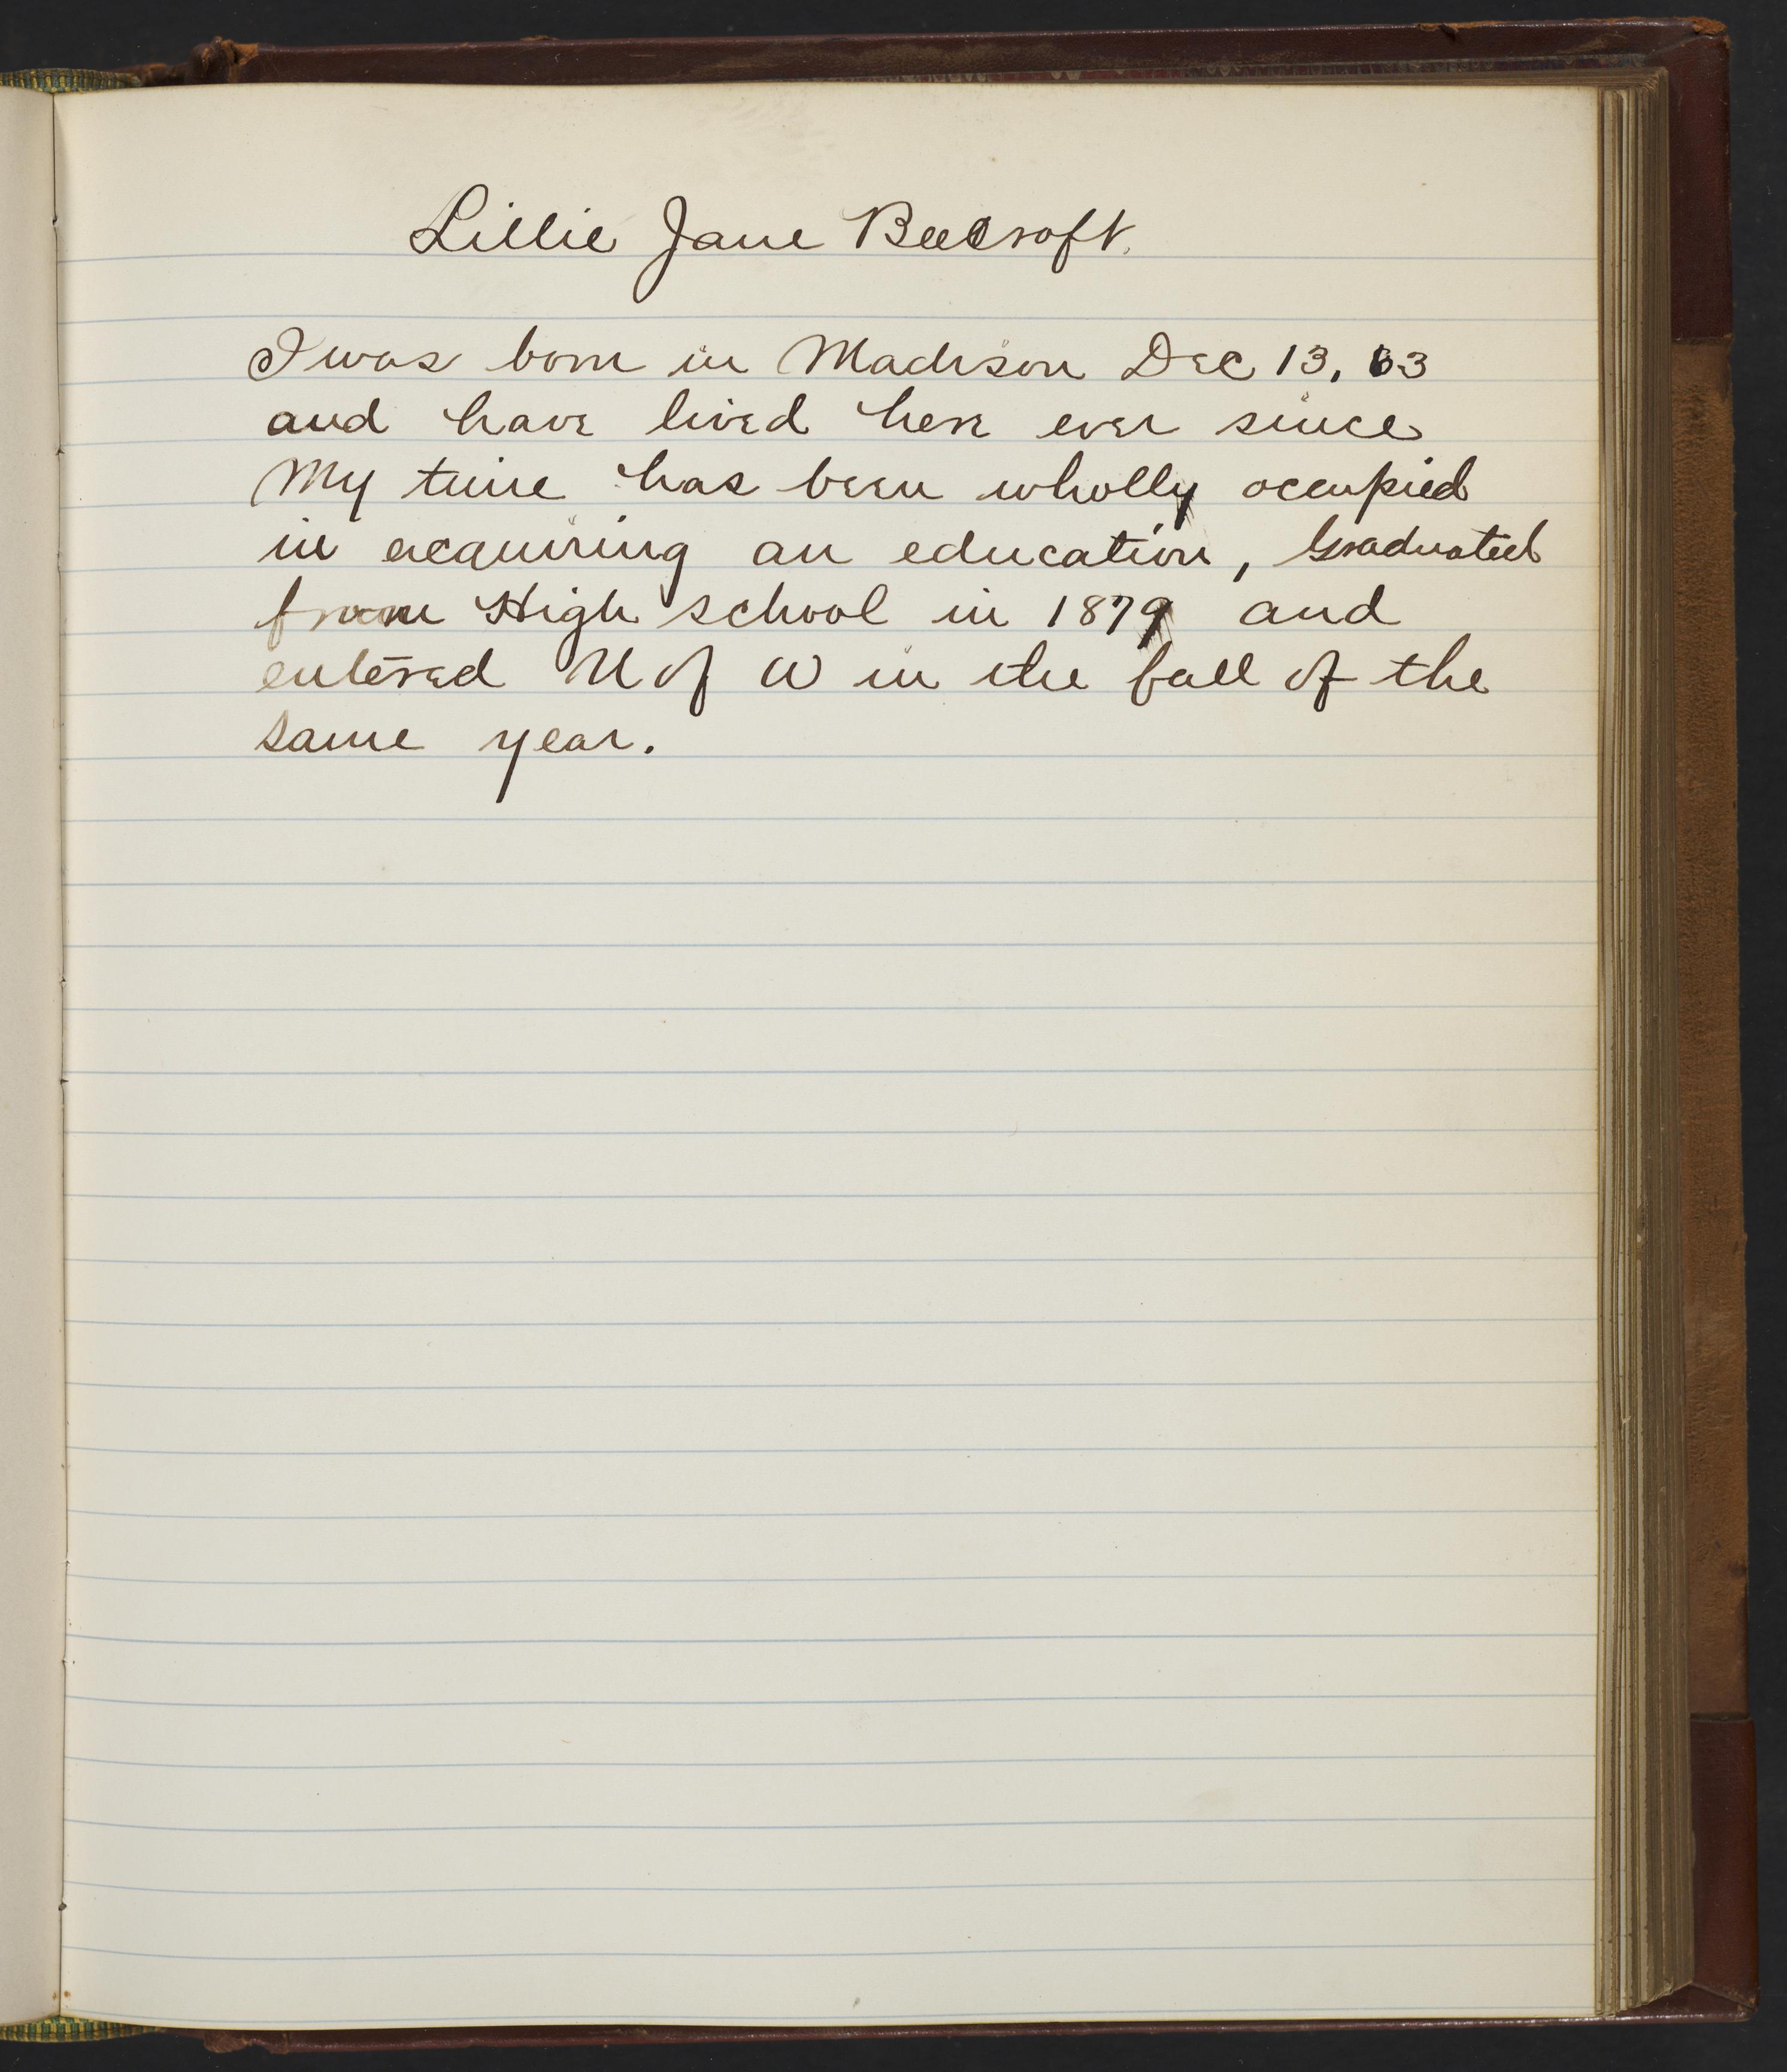 Lillie Jane Beecroft.
I was born in Madison Dec 13, 63
and have lived here ever since
My time has been wholly occupied
in acquiring an education, Graduated
from High school in 1879 and
entered U of W in the fall of the
same year.